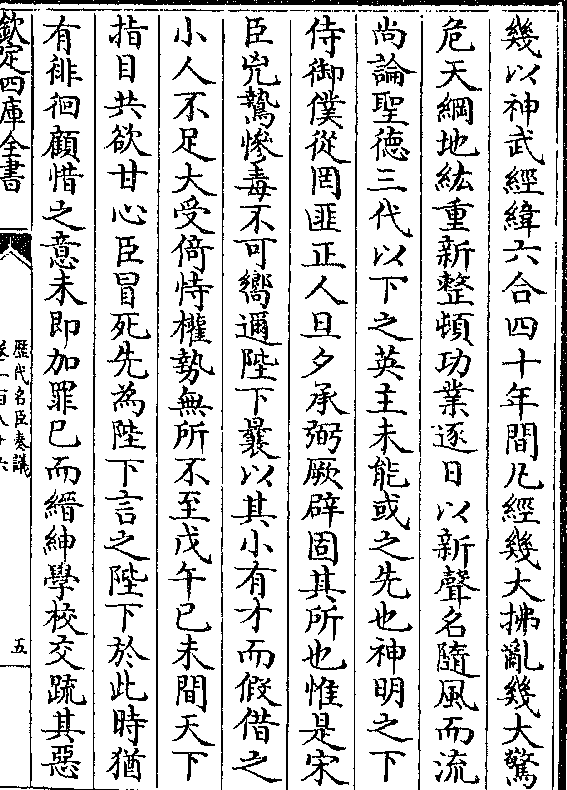 幾以神武經緯六合四十年間凡經幾大拂亂幾大驚
危天綱地紘重新整頓功業逐日以新聲名隨風而流
尚論聖德三代以下之英主未能或之先也神明之下
侍御僕從罔匪正人旦夕承弼厥辟固其所也惟是宋
臣兇鷙慘毒不可嚮邇陛下曩以其小有才而假借之
小人不足大受倚恃權勢無所不至戊午已未間天下
指目共欲甘心臣冒死先為陛下言之陛下於此時猶
有徘徊顧惜之意未即加罪已而縉紳學校交疏其惡
欽定四庫全書
歷代名臣奏議
卷一百八十六
五